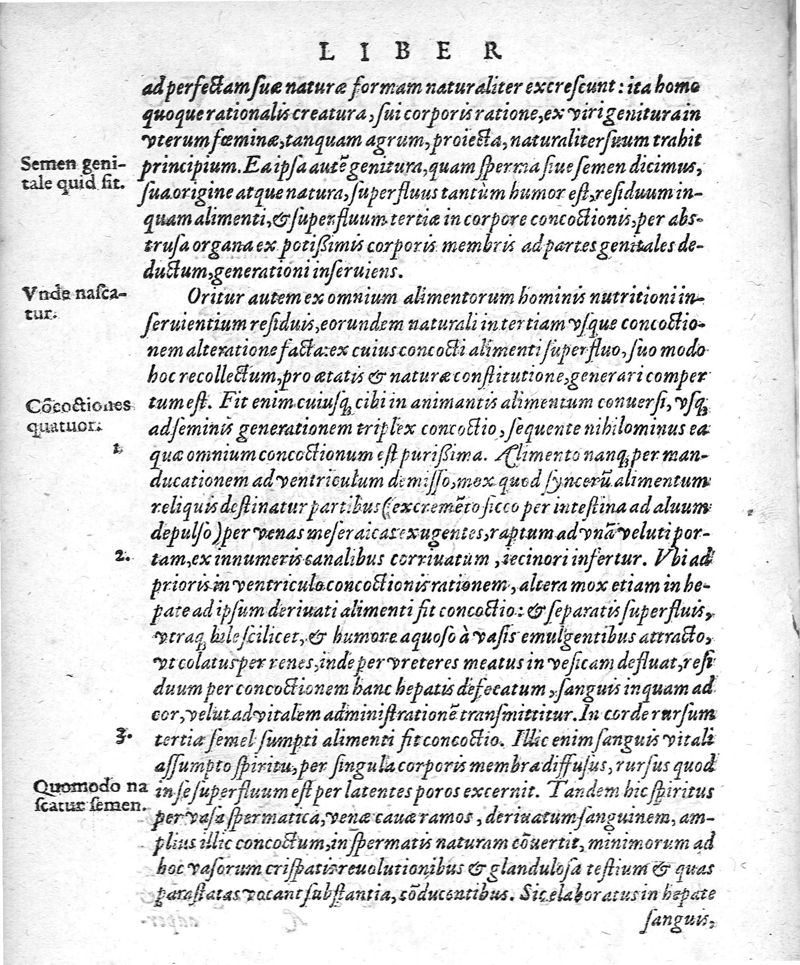 LIBER
ad perfectam suæ naturæ formam naturaliter excrescunt: ita homo
quoque rationalis creatura, sui corporis ratione, ex viri genitura in
vterum fœminæ, tanquam agrum, proiecta, naturaliter suum trahit
Semen geni-
tale quid sit.
principium. Ea ipsa autē genitura, quam sperma siue semen dicimus,
sua origine atque natura, superfluus tantùm humor est, residuum in-
quam alimenti, & superfluum tertiæ in corpore concoctionis, per abs-
trusa organa ex potißimis corporis membris ad partes genitales de-
ductum, generationi inseruiens.
Vnde nasca-
tur.
Oritur autem ex omnium alimentorum hominis nutritioni in-
seruientium residuis, eorundem naturali in tertiam vsque concoctio-
nem alteratione facta: ex cuius concocti alimenti superfluo, suo modo
hoc recollectum, pro ætatis & naturæ constitutione, generari comper
Cōcoctiones
quatuor.
tum est. Fit enim cuiusq; cibi in animantis alimentum conuersi, vsq;
ad seminis generationem triplex concoctio, sequente nihilominus ea
1.
quæ omnium concoctionum est purißima. Alimento nanq; per man-
ducationem ad ventriculum demisso, mox quod syncerū alimentum
reliquis destinatur partibus (excremēto sicco per intestina ad aluum
depulso) per venas meseraicas exugentes, raptum ad vnā veluti por-
2.
tam, ex innumeris canalibus corriuatum, iecinori infertur. Vbi ad
prioris in ventriculo concoctionis rationem, altera mox etiam in he-
pate ad ipsum deriuati alimenti fit concoctio: & separatis superfluis,
vtraq; bile scilicet, & humore aquoso à vasis emulgentibus attracto,
vt colatus per renes, inde per vreteres meatus in vesicam defluat, resi
duum per concoctionem hanc hepatis defecatum, sanguis inquam ad
cor, velut ad vitalem administrationē transmittitur. In corde rursum
3.
tertia semel sumpti alimenti fit concoctio. Illic enim sanguis vitali
assumpto spiritu, per singula corporis membra diffusus, rursus quod
Quomodo na
scatur semen.
in se superfluum est per latentes poros excernit. Tandem hic spiritus
per vasa spermatica, venæ cauæ ramos, deriuatum sanguinem, am-
plius illic concoctum, in spermatis naturam cōuertit, minimorum ad
hoc vasorum crispatis reuolutionibus & glandulosa testium & quas
parastatas vocant substantia, cōducentibus. Sic elaboratus in hepate
sanguis,